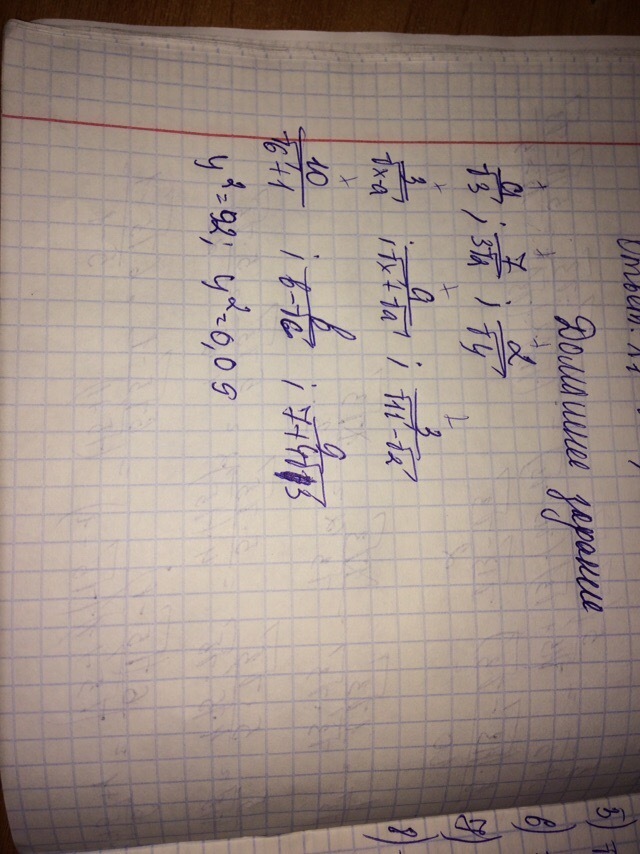 Ответ:
Домашнее задание
a/√3 ; 7/3√2 ; 2/√y
3/√x-a ; a/√x+√a ; 3/√11-√2
10/√6+1 ; b/b-√6 ; 9/7+4√3
y²=92; y²=0,09
5) 7
6)
7)
8)